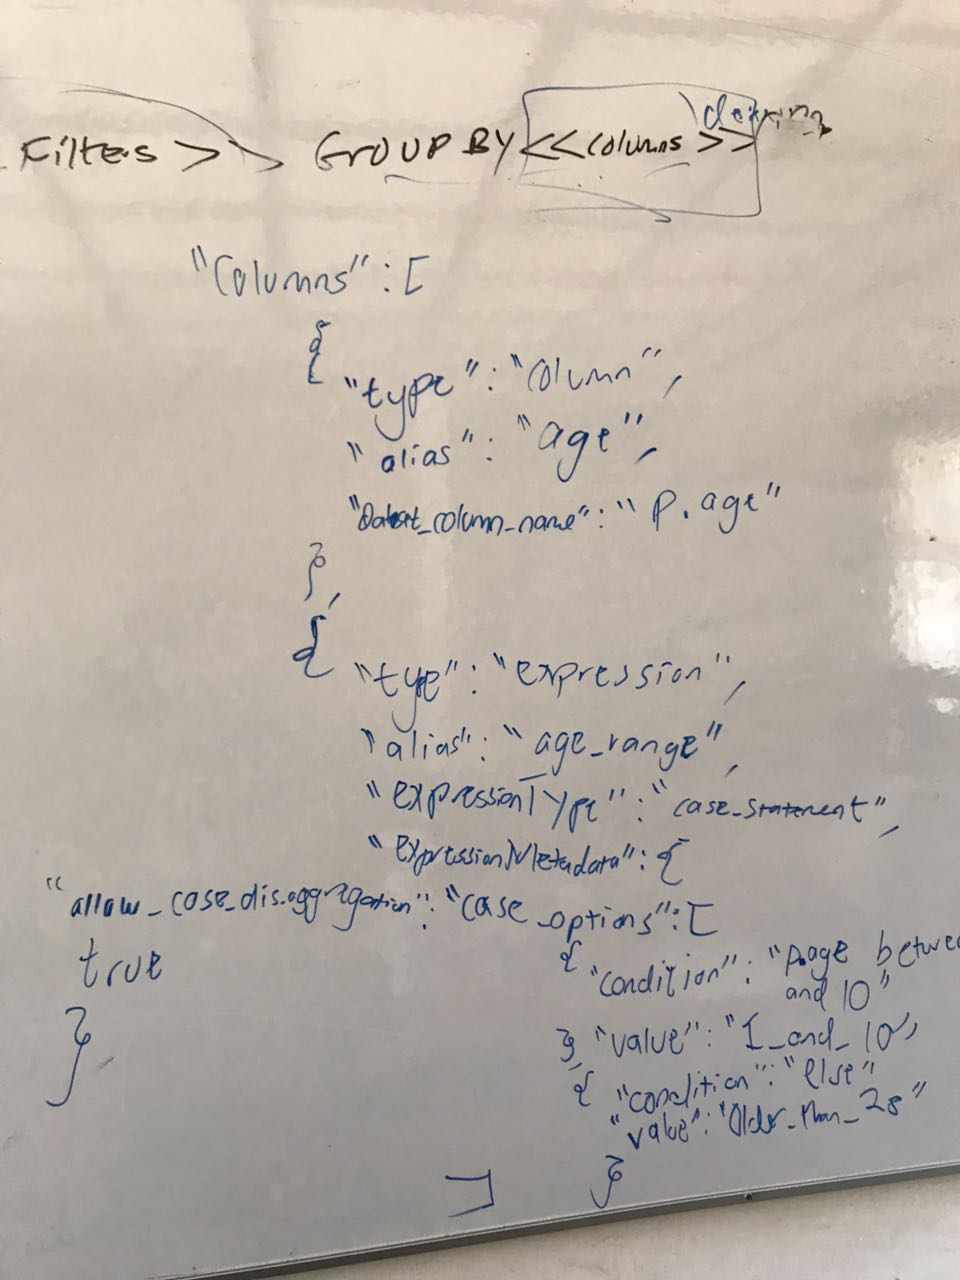 Filters >> GROUP BY <<columns >>
"Columns":[
{
"type":"column",
"alias": "age",
"Dataset_column_name":"p.age"
},
{
"type":"expression",
"alias":"age_range",
"expressionType":"case_statement",
"expressionMetadata":{
"allow_case_disaggregation": "case_options":[
true
{ "condition": "p.age between
and 10"
"value":"1_and_10",
},
{ "condition":"else"
"value":"Older_than_28"
}
}
]